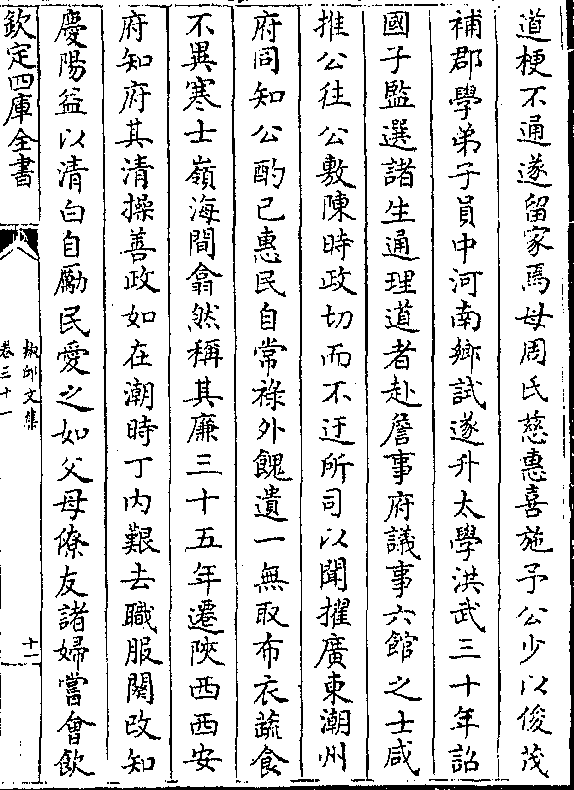 道梗不通遂留家焉母周氏慈惠喜施予公少以俊茂
補郡學弟子員中河南鄉試遂升太學洪武三十年詔
國子監選諸生通理道者赴詹事府議事六館之士咸
推公往公敷陳時政切而不迂所司以聞擢廣東潮州
府同知公酌己惠民自常祿外餽遺一無取布衣蔬食
不異寒士嶺海間翕然稱其廉三十五年遷陜西西安
府知府其清操善政如在潮時丁内艱去職服闋改知
慶陽益以清白自勵民愛之如父母僚友諸婦嘗會飲
欽定四庫全書
椒邱文集
卷三十一
十二